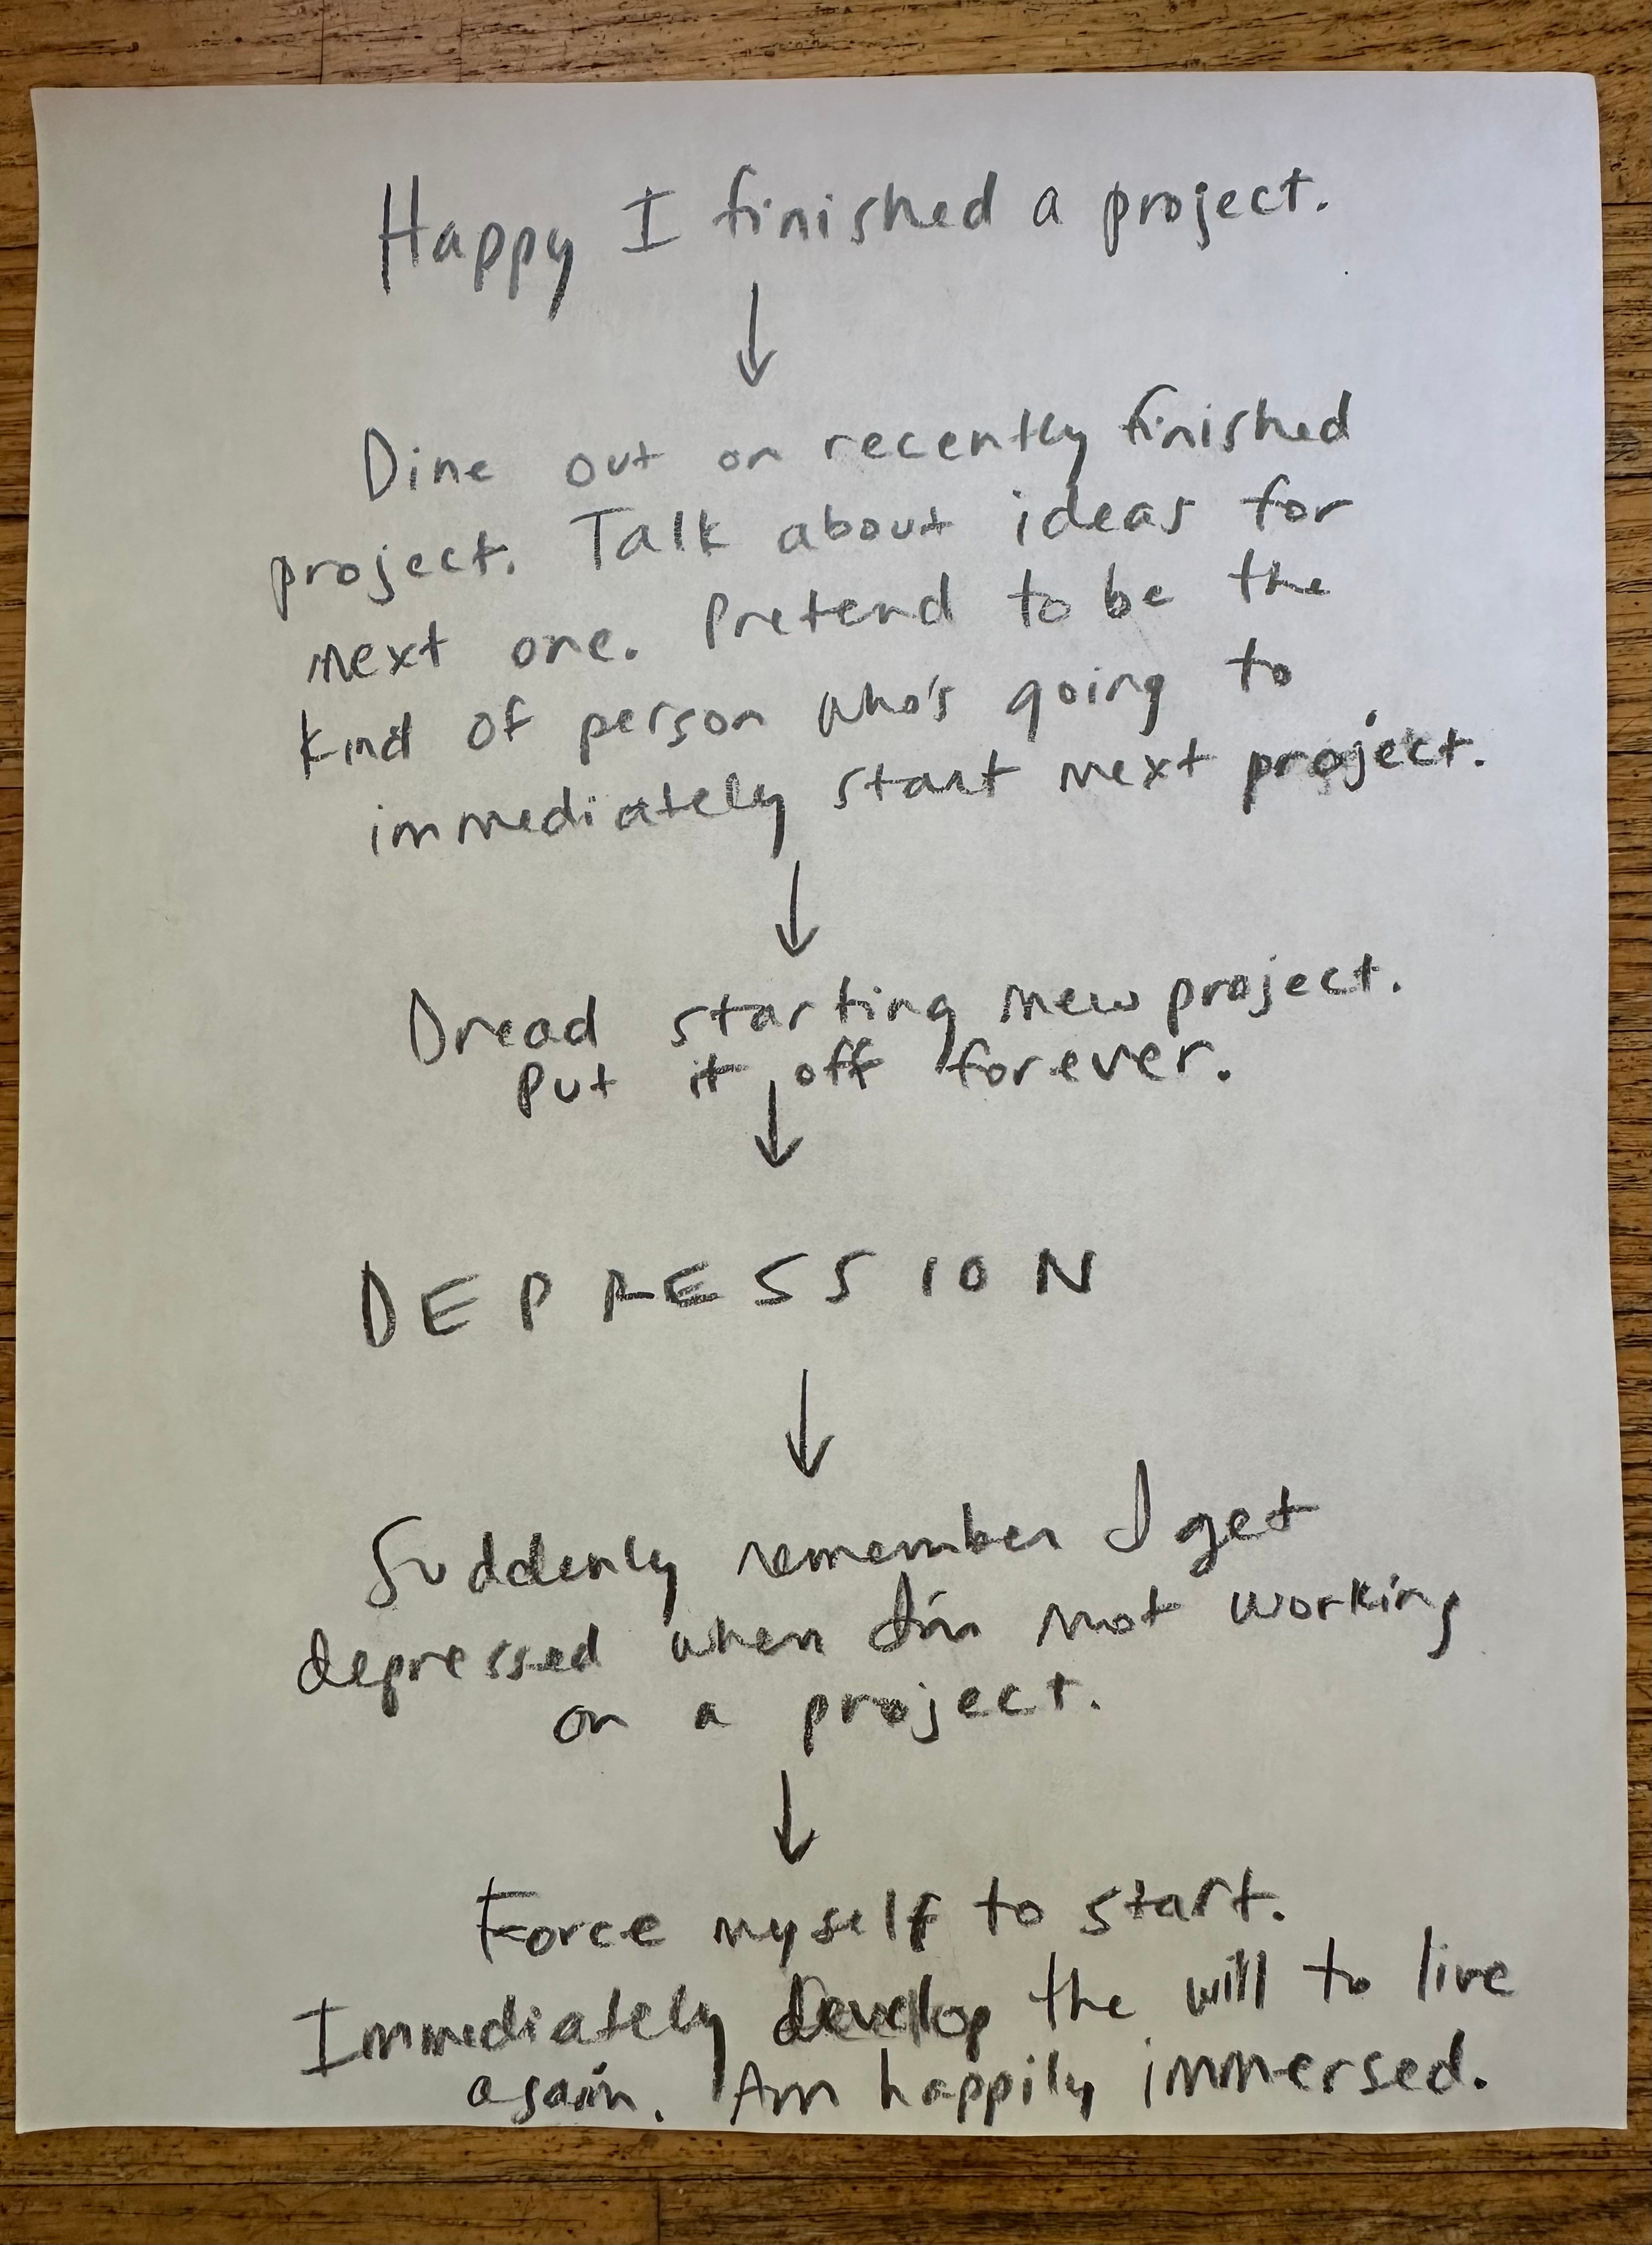 Happy I finished a project.
↓
Dine out on recently finished
project. Talk about ideas for
next one. Pretend to be the
kind of person who's going to
immediately start next project.
↓
Dread starting new project.
Put it off forever.
↓
DEPRESSION
↓
Suddenly remember I get
depressed when I'm not working
on a project.
↓
Force myself to start.
Immediately develop the will to live
again. Am happily immersed.